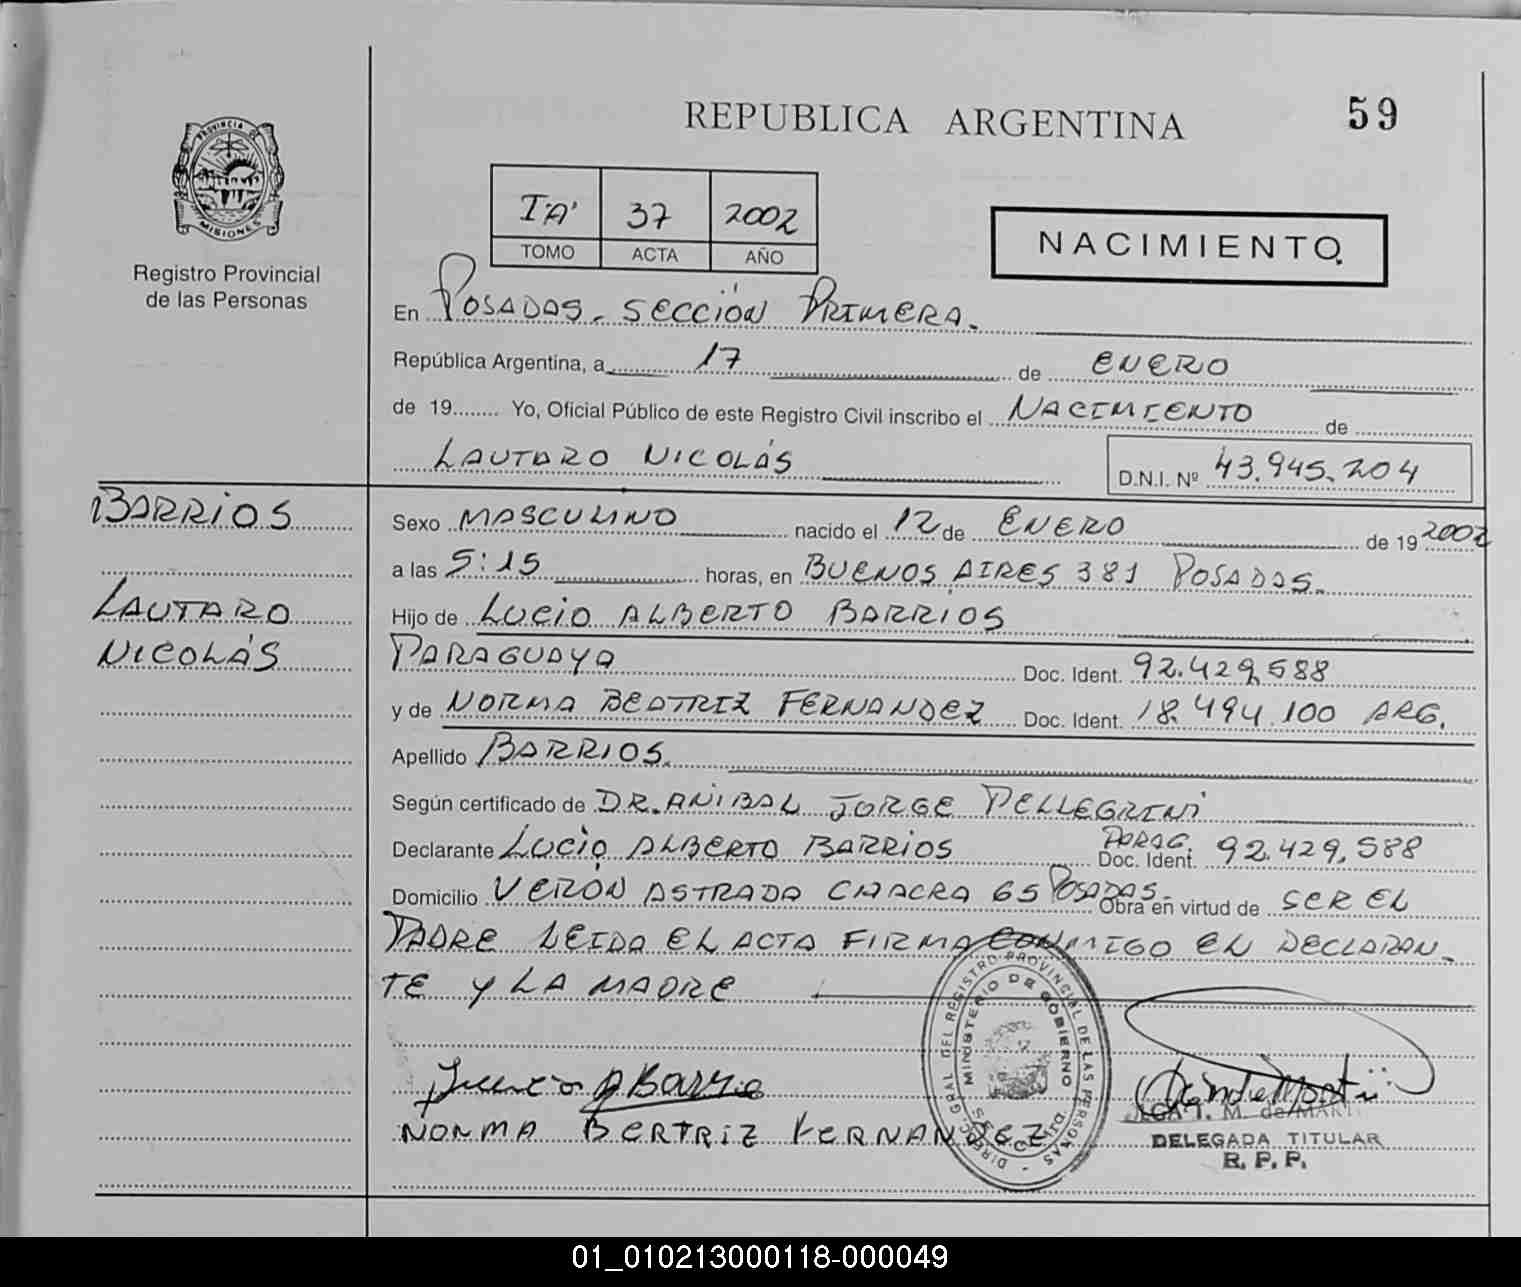 REPUBLICA ARGENTINA
59
PROVINCIA DE
MISIONES
Registro Provincial
de las Personas
I'A' 37 2002
TOMO ACTA AÑO
NACIMIENTO.
En POSADAS. SECCIÓN PRIMERA.
República Argentina, a 17 de ENERO
de 19........ Yo, Oficial Público de este Registro Civil inscribo el NACIMIENTO de
LAUTARO NICOLÁS D.N.I. Nº 43.945.204
BARRIOS
LAUTARO
NICOLÁS
Sexo MASCULINO nacido el 12 de ENERO de 19 2002
a las 5:15 horas, en BUENOS AIRES 381 POSADAS.
Hijo de LUCIO ALBERTO BARRIOS
PARAGUAYA Doc. Ident. 92.429.588
y de NORMA BEATRIZ FERNANDEZ Doc. Ident. 18.494.100 ARG.
Apellido BARRIOS.
Según certificado de DR. ANIBAL JORGE PELLEGRINI
Declarante LUCIO ALBERTO BARRIOS PARAG. Doc. Ident. 92.429.588
Domicilio VERÓN ASTRADA CHACRA 65 POSADAS.- Obra en virtud de SER EL
PADRE LEIDA EL ACTA FIRMA CONMIGO EL DECLARAN-
TE Y LA MADRE
DIREC. GRAL DEL REGISTRO PROVINCIAL DE LAS PERSONAS
MINISTERIO DE GOBIERNO
NORMA BERTRIZ FERNANDEZ
T. M. de MARTI
DELEGADA TITULAR
R. P. P.
01_010213000118-000049